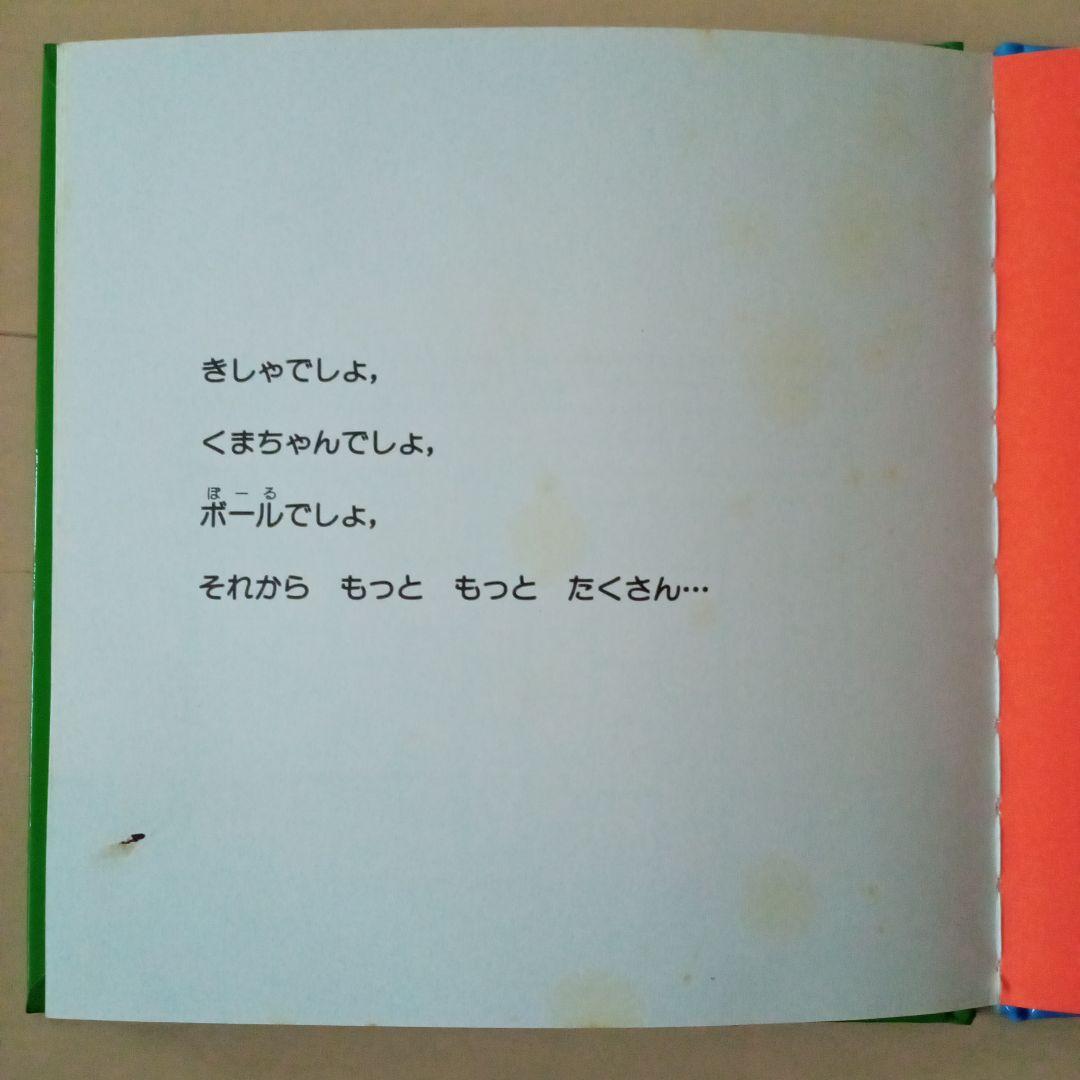 きしゃでしょ,
くまちゃんでしょ,
ぼーる
ボールでしょ,
それから　もっと　もっと　たくさん…